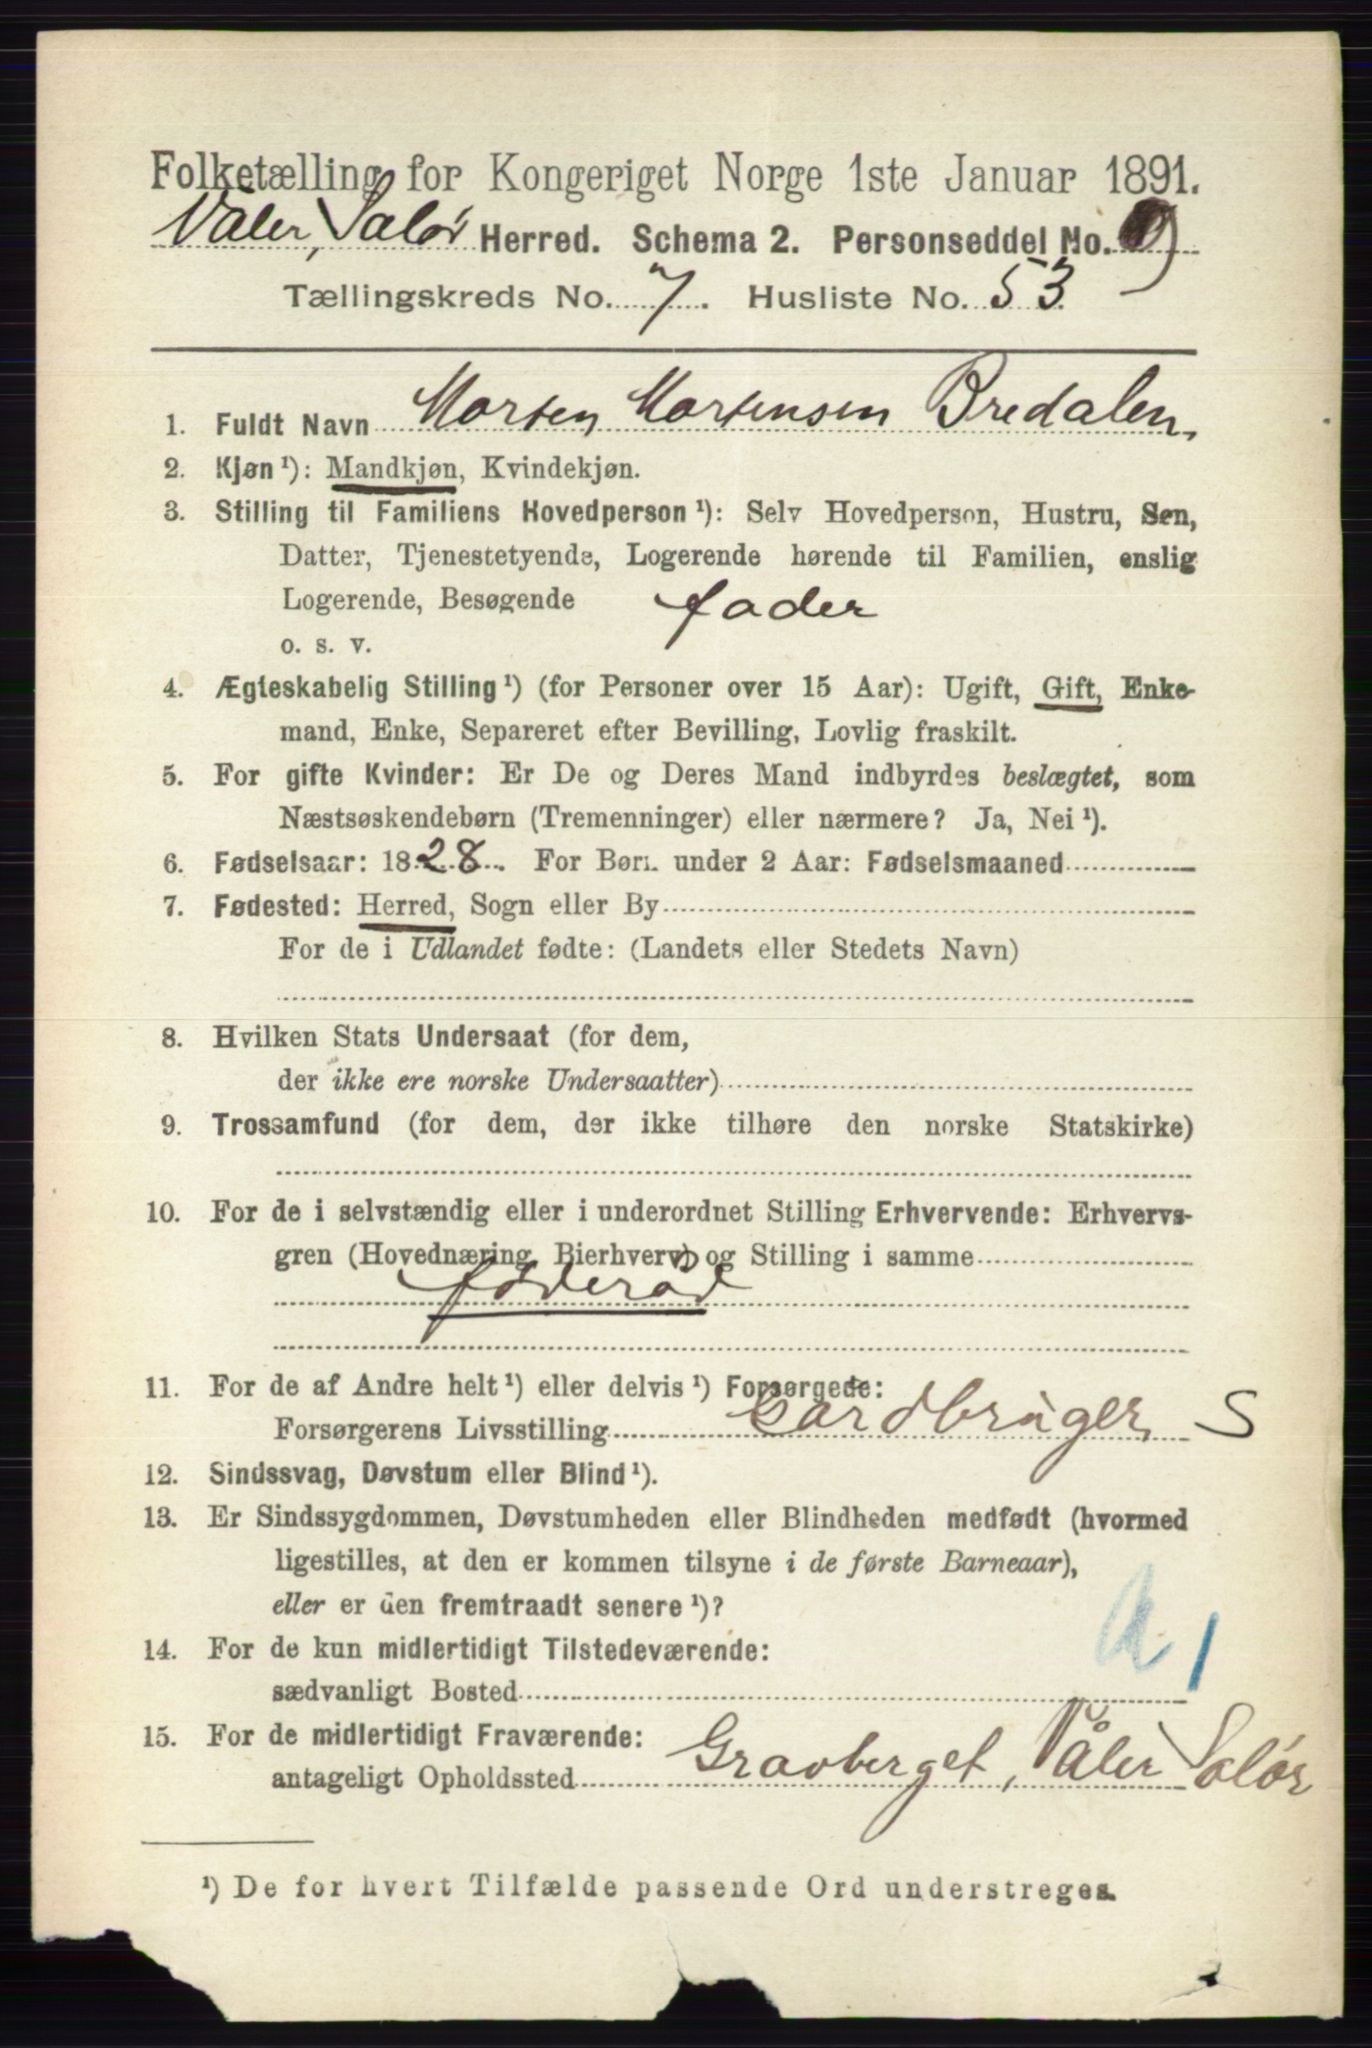 Folketælling for Kongeriget Norge 1ste Januar 1891.
Våler, Solør Herred. Schema 2. Personseddel No. 9
Tællingskreds No. 7. Husliste No. 53
1. Fuldt Navn Morten Mortensen Bredalen,
2. Kjøn ¹): Mandkjøn, Kvindekjøn.
3. Stilling til Familiens Hovedperson ¹): Selv Hovedperson, Hustru, Søn,
Datter, Tjenestetyende, Logerende hørende til Familien, enslig
Logerende, Besøgende fader
o. s. v.
4. Ægteskabelig Stilling ¹) (for Personer over 15 Aar): Ugift, Gift, Enke-
mand, Enke, Separeret efter Bevilling, Lovlig fraskilt.
5. For gifte Kvinder: Er De og Deres Mand indbyrdes beslægtet, som
Næstsøskendebørn (Tremenninger) eller nærmere? Ja, Nei ¹).
6. Fødselsaar: 1828. For Børn under 2 Aar: Fødselsmaaned
7. Fødested: Herred, Sogn eller By
For de i Udlandet fødte: (Landets eller Stedets Navn)
8. Hvilken Stats Undersaat (for dem,
der ikke ere norske Undersaatter)
9. Trossamfund (for dem, der ikke tilhøre den norske Statskirke)
10. For de i selvstændig eller i underordnet Stilling Erhvervende: Erhvervs-
gren (Hovednæring, Bierhverv) og Stilling i samme
föderåd
11. For de af Andre helt ¹) eller delvis ¹) Forsørgede:
Forsørgerens Livsstilling Gardbruger S
12. Sindssvag, Døvstum eller Blind ¹).
13. Er Sindssygdommen, Døvstumheden eller Blindheden medfødt (hvormed
ligestilles, at den er kommen tilsyne i de første Barneaar),
eller er den fremtraadt senere ¹)?
14. For de kun midlertidigt Tilstedeværende:
sædvanligt Bosted
15. For de midlertidigt Fraværende:
antageligt Opholdssted Gravberget, Våler Solør
¹) De for hvert Tilfælde passende Ord understreges.